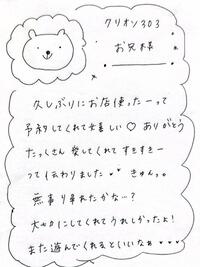 クリオン303
お兄様
久しぶりにお店使ったーって
予約してくれて嬉しい♡ ありがとう
たっくさん 愛してくれて すきすきー
って伝わりました♥♥ きゅん。
無事り帰れたかな…?
大切にしてくれてうれしかったよ!
また遊んでくれるといいなぁ♥♥♥